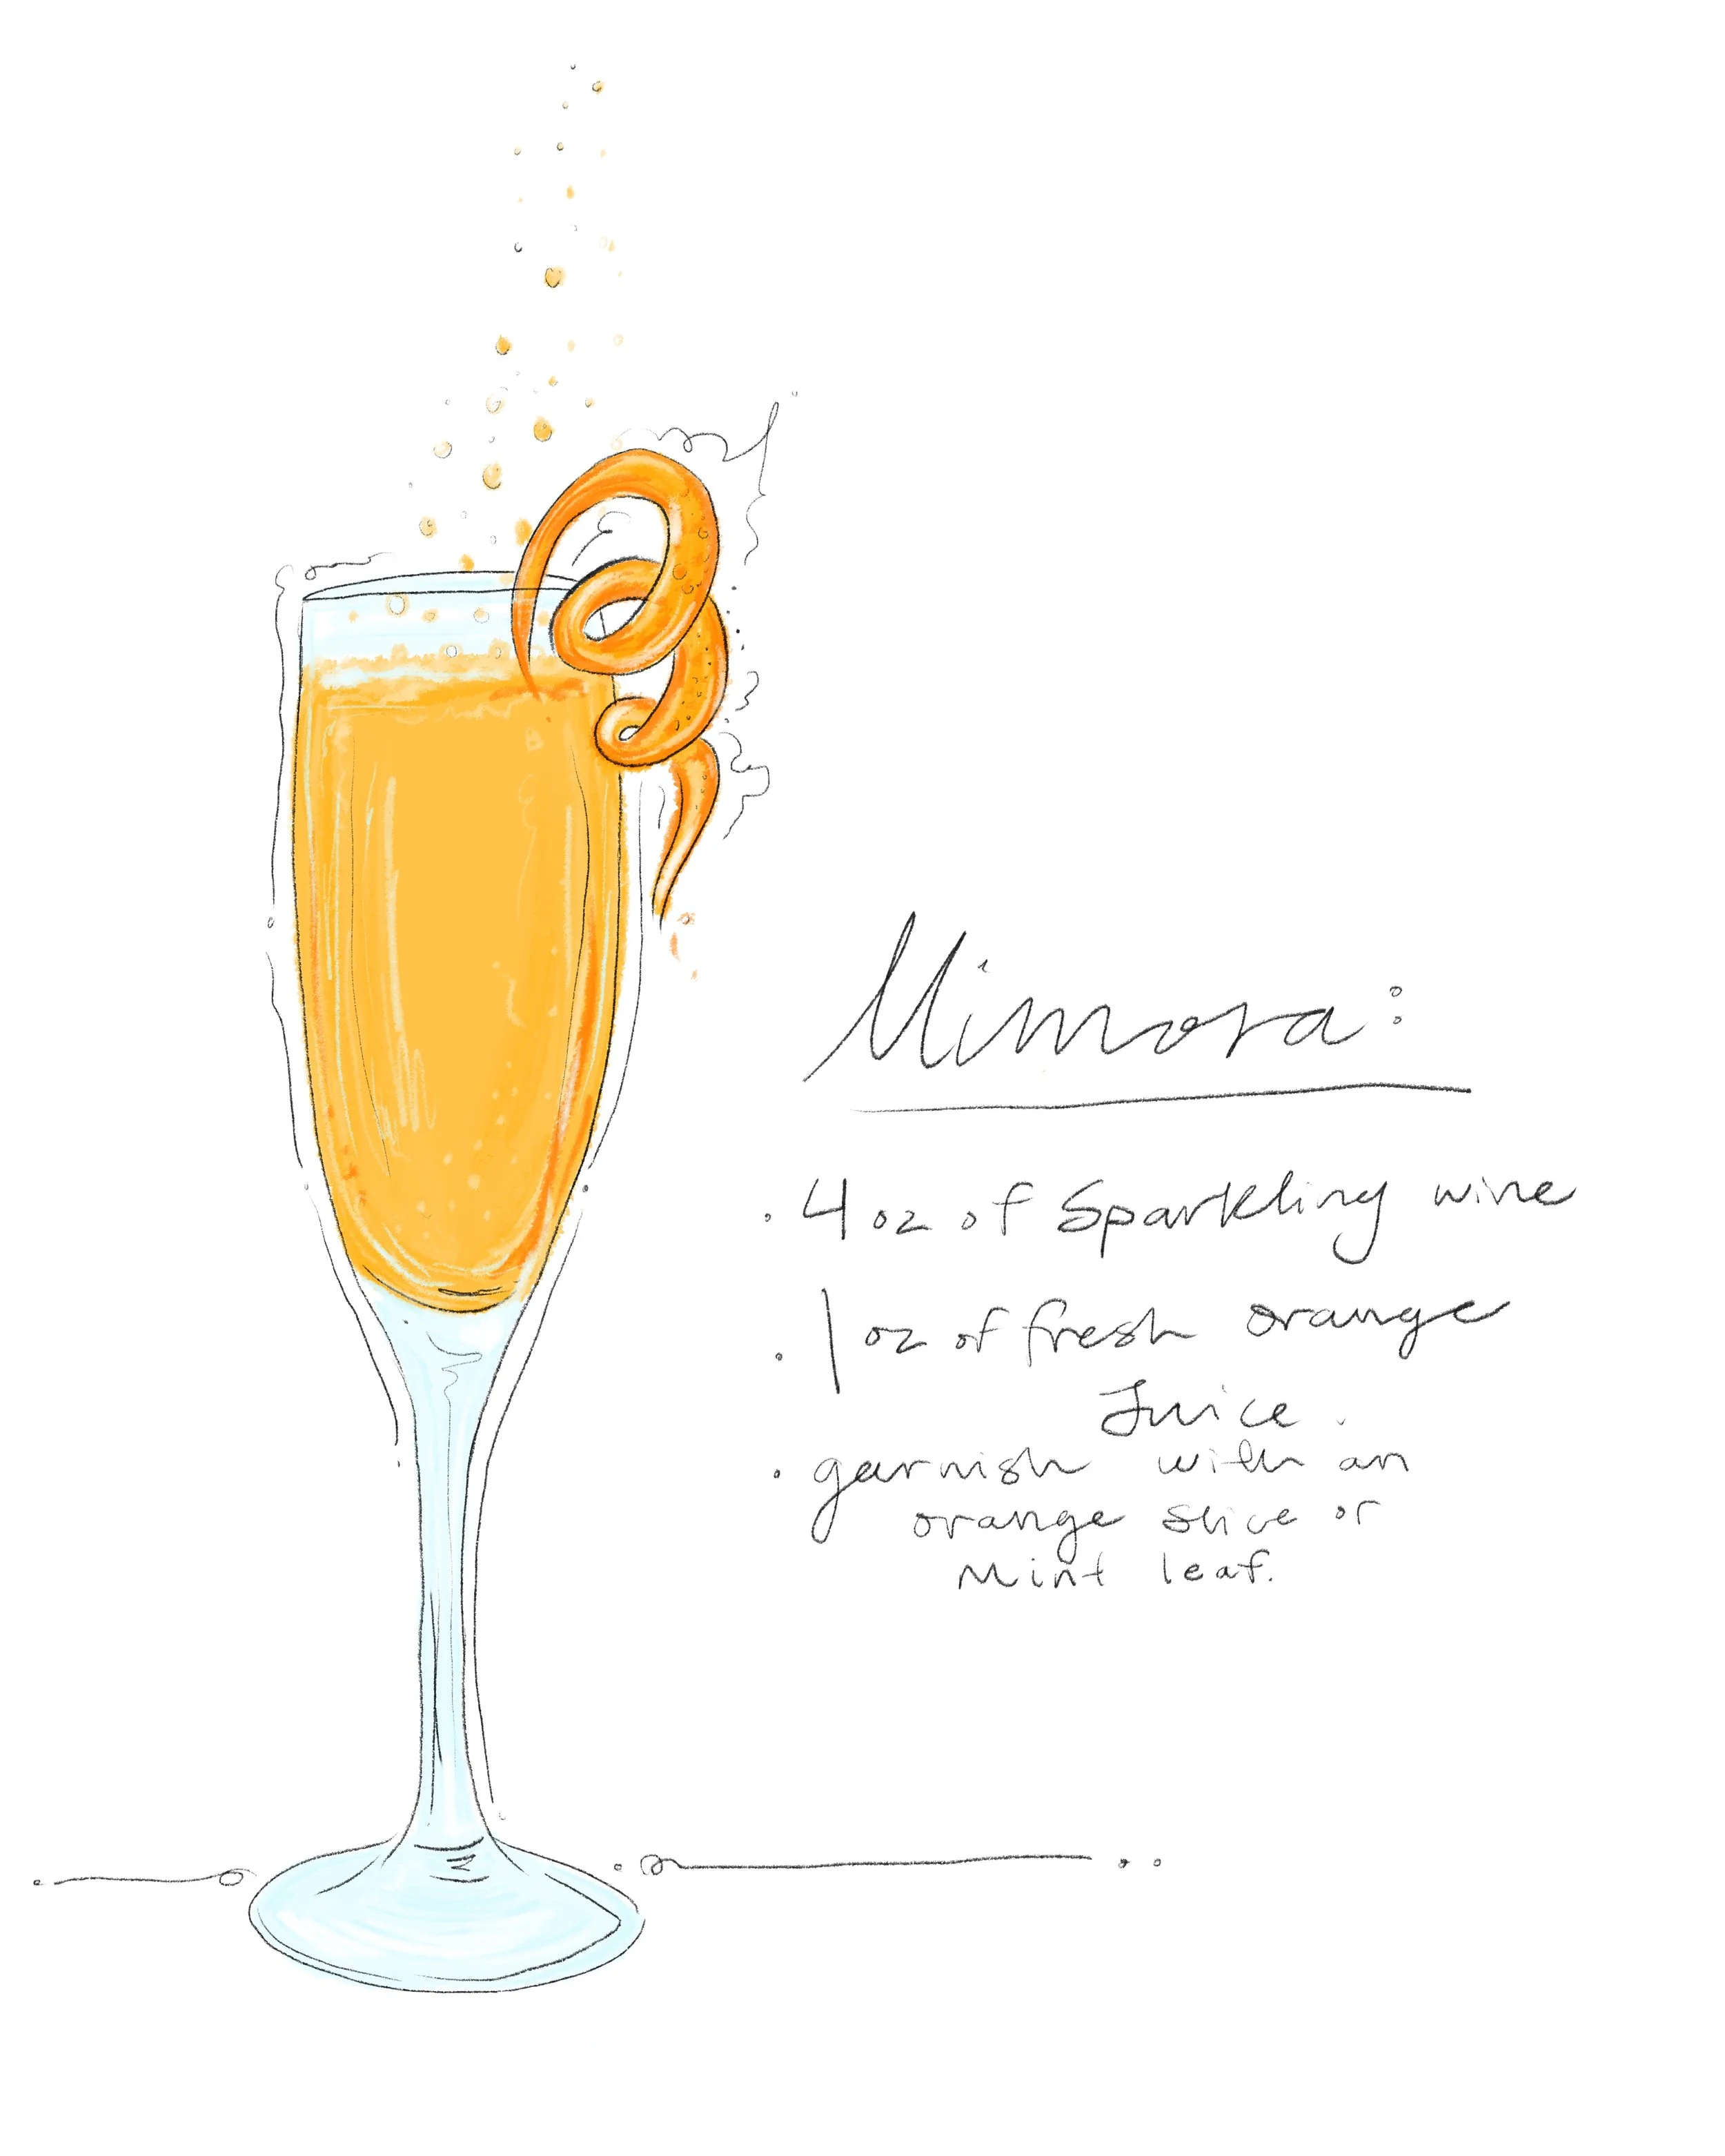 Mimosa:
. 4 oz of Sparkling wine
. 1 oz of fresh orange
Juice.
. garnish with an
orange slice or
Mint leaf.